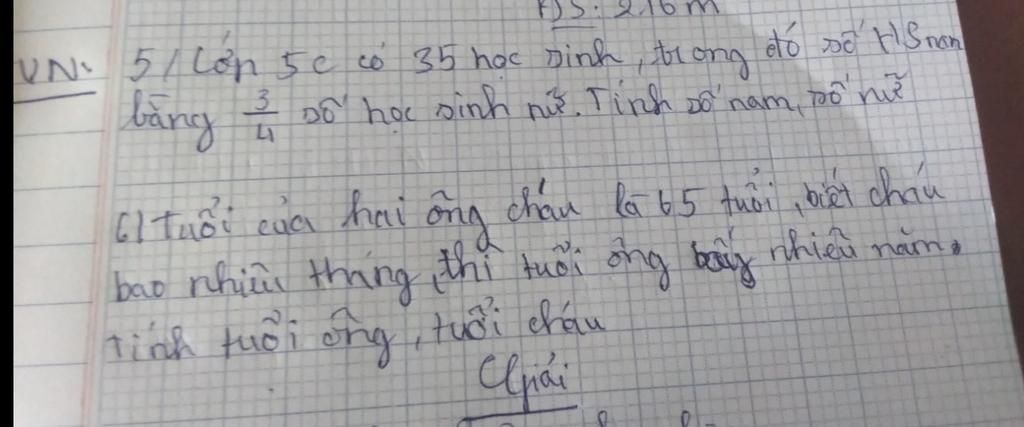 ĐS: 216m
VN:
5/ Lớp 5c có 35 học sinh, trong đó số HS nam
bằng 3/4 số học sinh nữ. Tính số nam, số nữ
6/ tuổi của hai ông cháu là 65 tuổi, biết cháu
bao nhiêu tháng thì tuổi ông bấy nhiêu năm.
Tính tuổi ông, tuổi cháu
Giải